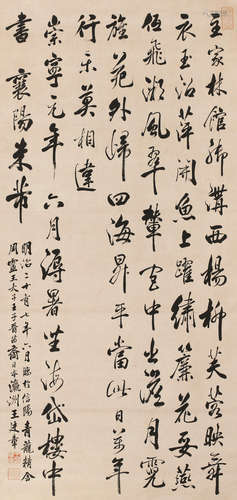 主家林館御溝西楊柳芙蓉映舞
衣玉沼萍開魚上躍繡簾花妥燕
低飛風翠輦宮中出滿月霓
旌苑外歸四海昇平當此日萬年
行樂莫相違
崇寧元年六月溽暑坐海岱樓中
書 襄陽米芾
明治二十有七年六月臨於信陽青龍精舍
周靈王太子王子晉苗裔日本瀛洲王建章